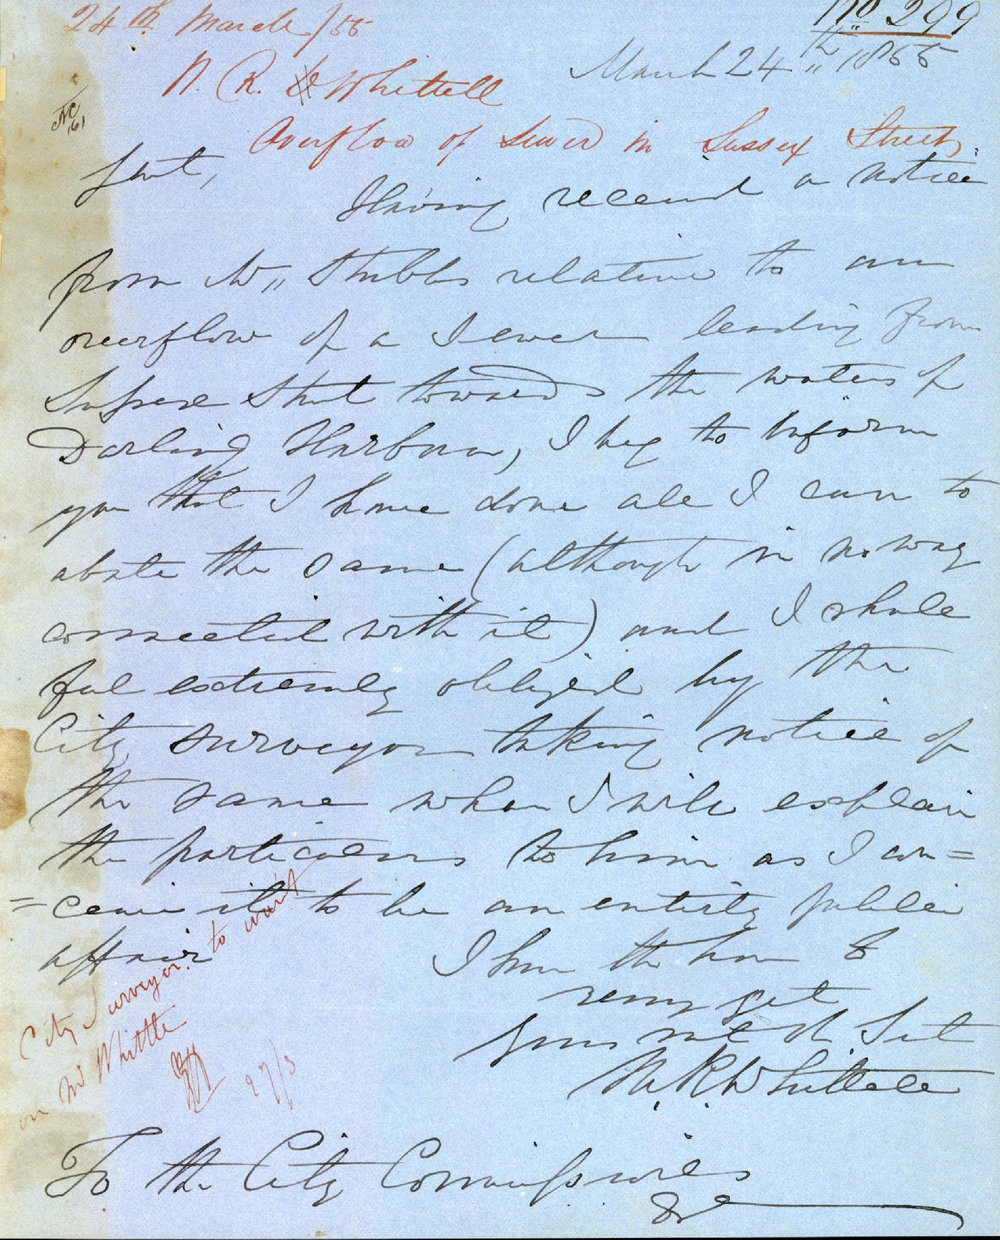 24th March /55
No 299
March 24th, 1855
N. R. Whittell
Overflow of Sewer in Sussex Street
Gent,
Having received a notice
from Mr Stubbs relative to an
overflow of a Sewer leading from
Sussex Street towards the waters of
Darling Harbour, I beg to inform
you that I have done all I can to
abate the same (although in no way
connected with it) and I shall
feel extremely obliged by the
City surveyor taking notice of
the same when I will explain
the particulars to him as I con=
=ceive it to be an entirely public
affair
I have the honor to
remain Gent
Your mt ob Svt
N. R. Whittell
City Surveyor to wait
on Mr Whittle
27/3
To the City Commissioners